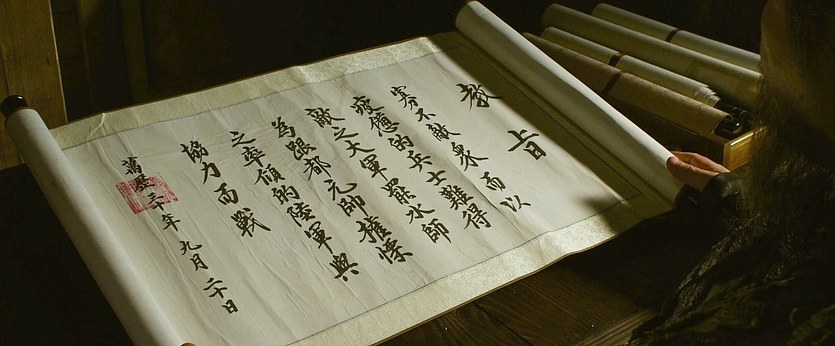 教旨
寡不敵衆而以
疲憊的兵士難得
敵之大軍罷水師
為跟都元帥權慄
之率領的陸軍與
協力而戰
萬曆三十年九月二十日